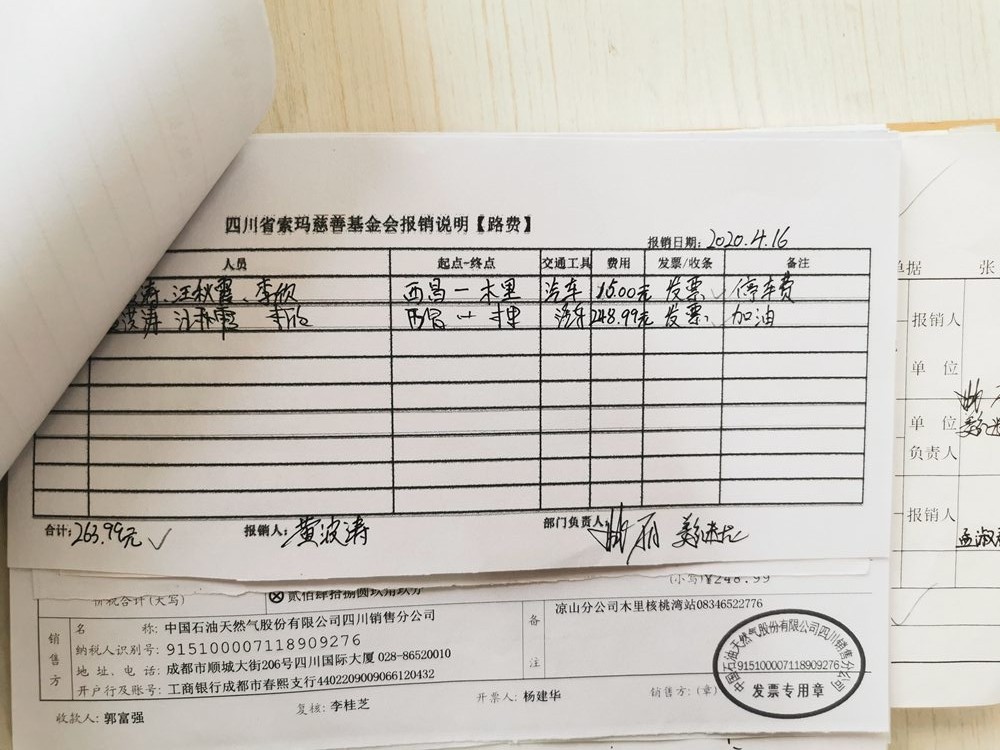 四川省索玛慈善基金会报销说明【路费】
报销日期: 2020.4.16
人员 起点-终点 交通工具 费用 发票/收条 备注
涛、汪秋霞、李欣 西昌一木里 汽车 15.00元 发票 停车费
涛 汪秋霞 李欣 西昌一木里 汽车 248.99元 发票 加油
合计: 263.99元 报销人: 黄波涛 部门负责人:
单据 张
报销人
单位
单位
负责人
报销人
价税合计(大写) ⊗贰佰肆拾捌圆玖角玖分 (小写)¥248.99
销售方
名 称: 中国石油天然气股份有限公司四川销售分公司
纳税人识别号: 915100007118909276
地址、电话: 成都市顺城大街206号四川国际大厦 028-86520010
开户行及账号: 工商银行成都市春熙支行4402209009066120432
备注
凉山分公司木里核桃湾站08346522776
收款人: 郭富强 复核: 李桂芝 开票人: 杨建华 销售方: (章)
中国石油天然气股份有限公司四川销售分公司
915100007118909276
发票专用章